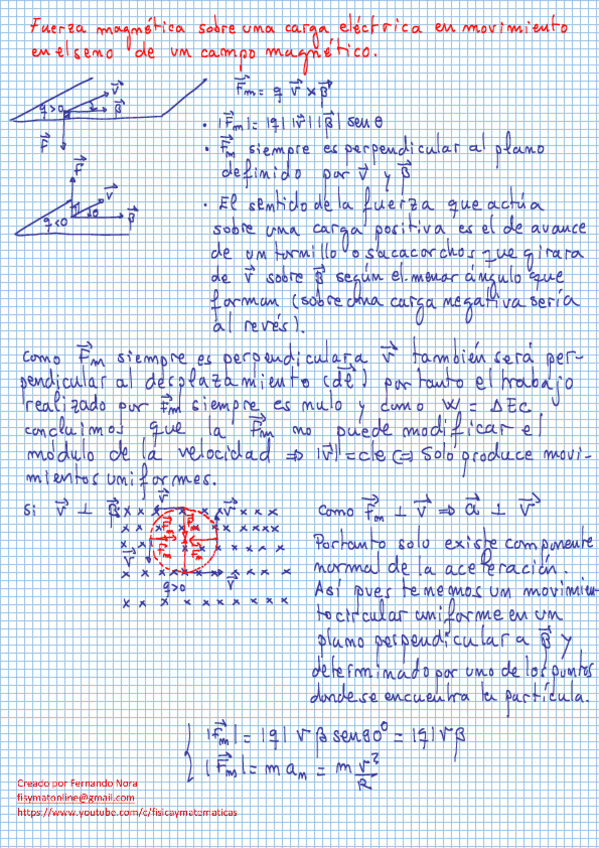 Fuerza magnética sobre una carga eléctrica en movimiento
en el seno de un campo magnético.
q>0 V⃗ B⃗
F⃗
F⃗m = q V⃗ x B⃗
• |F⃗m| = |q| |V⃗| |B⃗| sen θ
• F⃗m siempre es perpendicular al plano
definido por V⃗ y B⃗
F⃗
q<0 V⃗ B⃗
• El sentido de la fuerza que actúa
sobre una carga positiva es el de avance
de un tornillo o sacacorchos que girara
de V⃗ sobre B⃗ según el menor ángulo que
forman (sobre una carga negativa sería
al revés).
Como F⃗m siempre es perpendicular a V⃗ también será per-
pendicular al desplazamiento (d⃗e) por tanto el trabajo
realizado por F⃗m siempre es nulo y como W = ΔEc
concluimos que la F⃗m no puede modificar el
módulo de la velocidad ⇒ |V⃗| = cte (⇒ Solo produce movi-
mientos uniformes.
Si V⃗ ⊥ B⃗
V⃗ V⃗
F⃗m F⃗m
F⃗m F⃗m
V⃗ V⃗
q>0
Como F⃗m ⊥ V⃗ ⇒ a⃗ ⊥ V⃗
Por tanto solo existe componente
normal de la aceleración.
Así pues tenemos un movimien-
to circular uniforme en un
plano perpendicular a B⃗ y
determinado por uno de los puntos
donde se encuentra la partícula.
|F⃗m| = |q| V B sen 90° = |q| V B
|F⃗m| = m an = m v²/R
Creado por Fernando Nora
fisymatonline@gmail.com
https://www.youtube.com/c/fisicaymatematicas